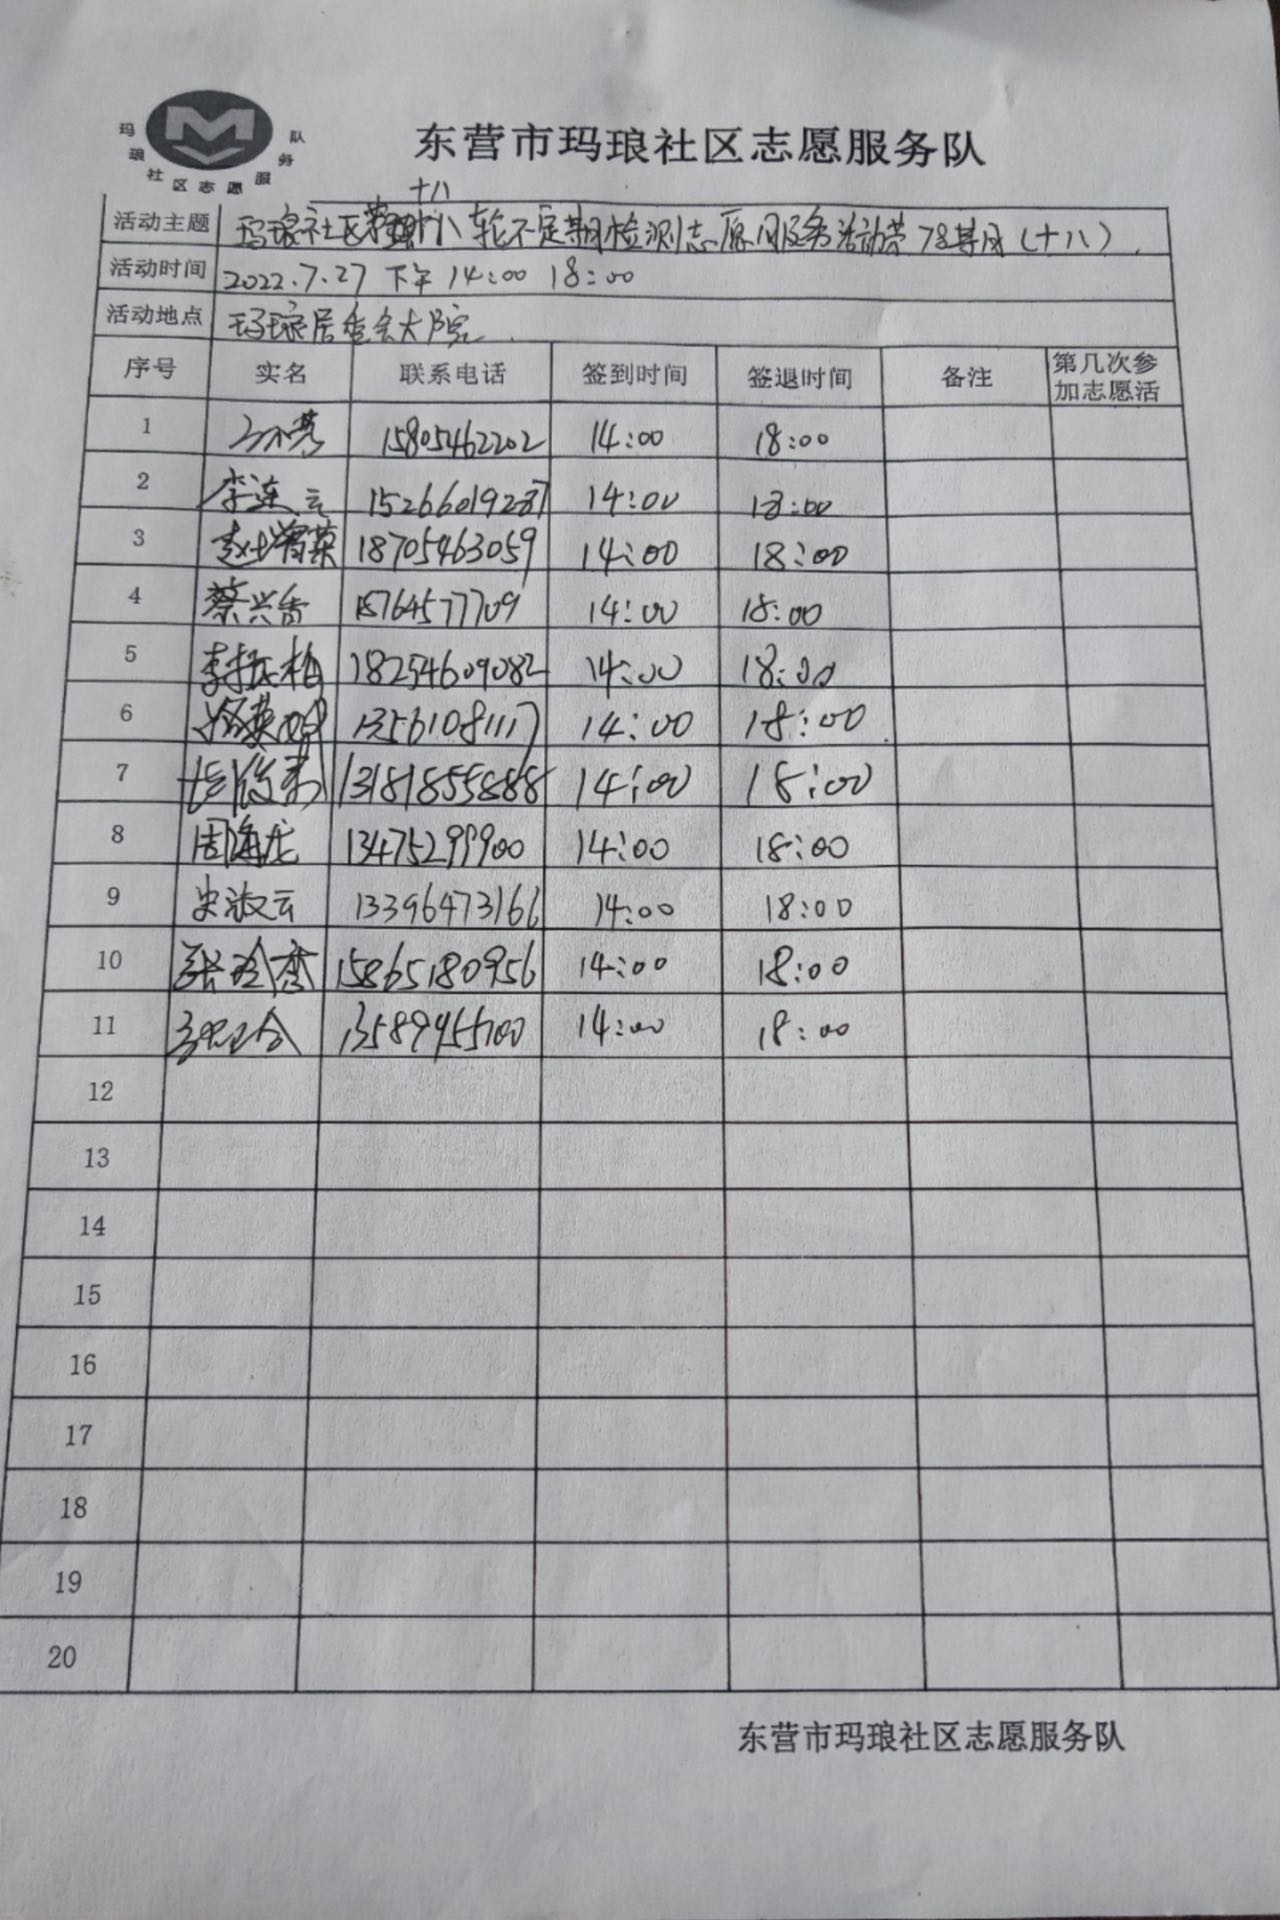 玛琅社区志愿服务队
东营市玛琅社区志愿服务队
十八
活动主题 玛琅社区第 轮不定期检测志愿服务活动第78期(十八)
活动时间 2022.7.27 下午 14:00 18:00
活动地点 玛琅居委会大院
序号 实名 联系电话 签到时间 签退时间 备注 第几次参加志愿活
1 15805462202 14:00 18:00
2 李连云 15266019287 14:00 18:00
3 赵增荣 18705463059 14:00 18:00
4 蔡兴香 18764577709 14:00 18:00
5 李振梅 18254609082 14:00 18:00
6 13561081117 14:00 18:00
7 13181855888 14:00 18:00
8 周海龙 13475299900 14:00 18:00
9 史淑云 13396473166 14:00 18:00
10 张玲香 15865180956 14:00 18:00
11 13589455700 14:00 18:00
12
13
14
15
16
17
18
19
20
东营市玛琅社区志愿服务队